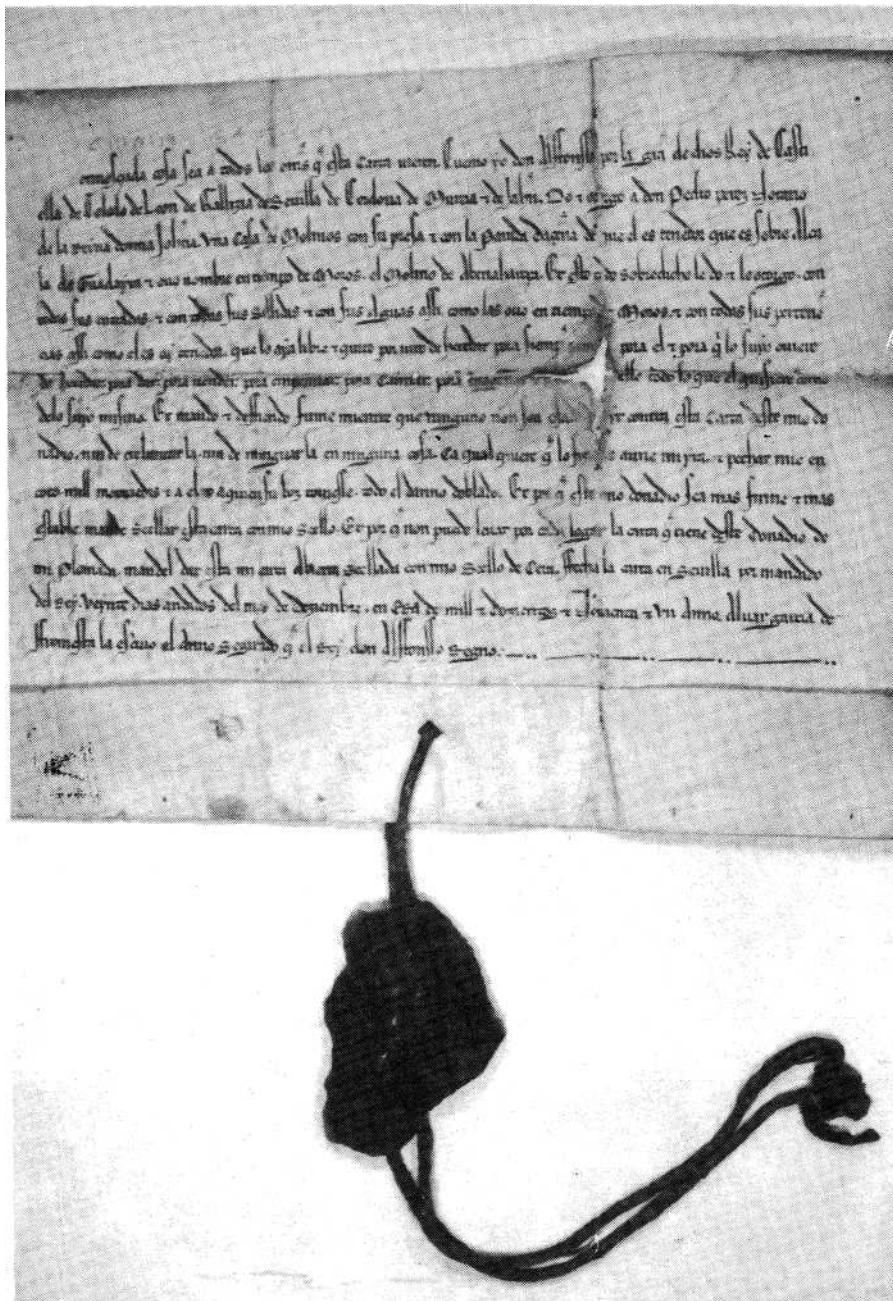 Connosçuda cosa sea a todos los omes q̃ esta carta uieren. Cuemo yo don Alffonsso por la gr̃a de dios Rey de Casti
ella de Toledo de Leon de Gallizia de Seuilla de Cordoua de Murcia ⁊ de Jahẽn. Do ⁊ otorgo a don Pedro perez
de la reina donna una casa de Molinos con su presa ⁊ con la Parada dagũa de que el es tenedor que es sobre Alca
la de Guadayra ⁊ ouo nombre en tiempo de Moros. el Molino de Et esto sobredicho le do ⁊ le otorgo. con
todas sus entradas. ⁊ con todas sus sallidas ⁊ con sus aguas assi como las ouo en tiempo Moros. ⁊ con todas sus pertenẽ
cias assi como el es tenedor. que lo aya libre ⁊ quito por iuro de heredat pora siempre pora el ⁊ pora q̃ lo suyo ouieren
de heredar. pora dar. pora uender. pora empennar. pora camiar. pora delle todo lo que el quisiere como
delo suyo mismo. Et mando ⁊ deffiendo firme mientre que ninguno non sea de yr contra esta carta deste mio do
nadio. nin de crebantar la. nin de minguar la en ninguna cosa. Ca qual quiere q̃ lo aurie mi yra. ⁊ pechar mie en
coto mill morauedis ⁊ a el o a qui su boz touiesse. todo el danno doblado. Et por q̃ este mio donadio sea mas firme ⁊ mas
estable. mande seellar esta carta con mio seello. Et por q̃ non puede leuar por cada logar la carta q̃ tiene deste donadio de
mi plomada. mandel dar esta mi carta abierta seellada con mio seello de cera. ffecha la carta en Seuilla por mandado
del Rey. veynte dias andados del mes de Deziembre. en Era de mill ⁊ dozientos ⁊ Nouaenta ⁊ un anno. Aluar garcia de
ffromesta la escriuio el anno segundo q̃ el Rey don Alffonsso Regno.